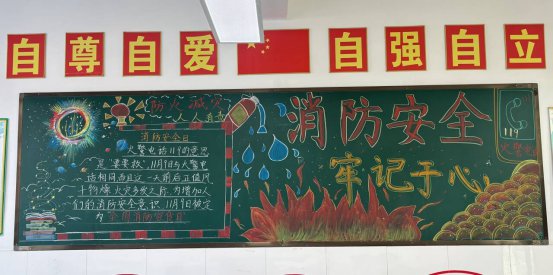 自尊自爱 自强自立
防火减灾
人人有责
消防安全日
火警电话119的意思
是"要要救",11月9日与火警电
话相同,而且这一天前后正值风
干物燥、火灾多发之际,为增加人
们的消防安全意识,11月9日被定
为"全国消防宣传日"
消防安全
牢记于心
119